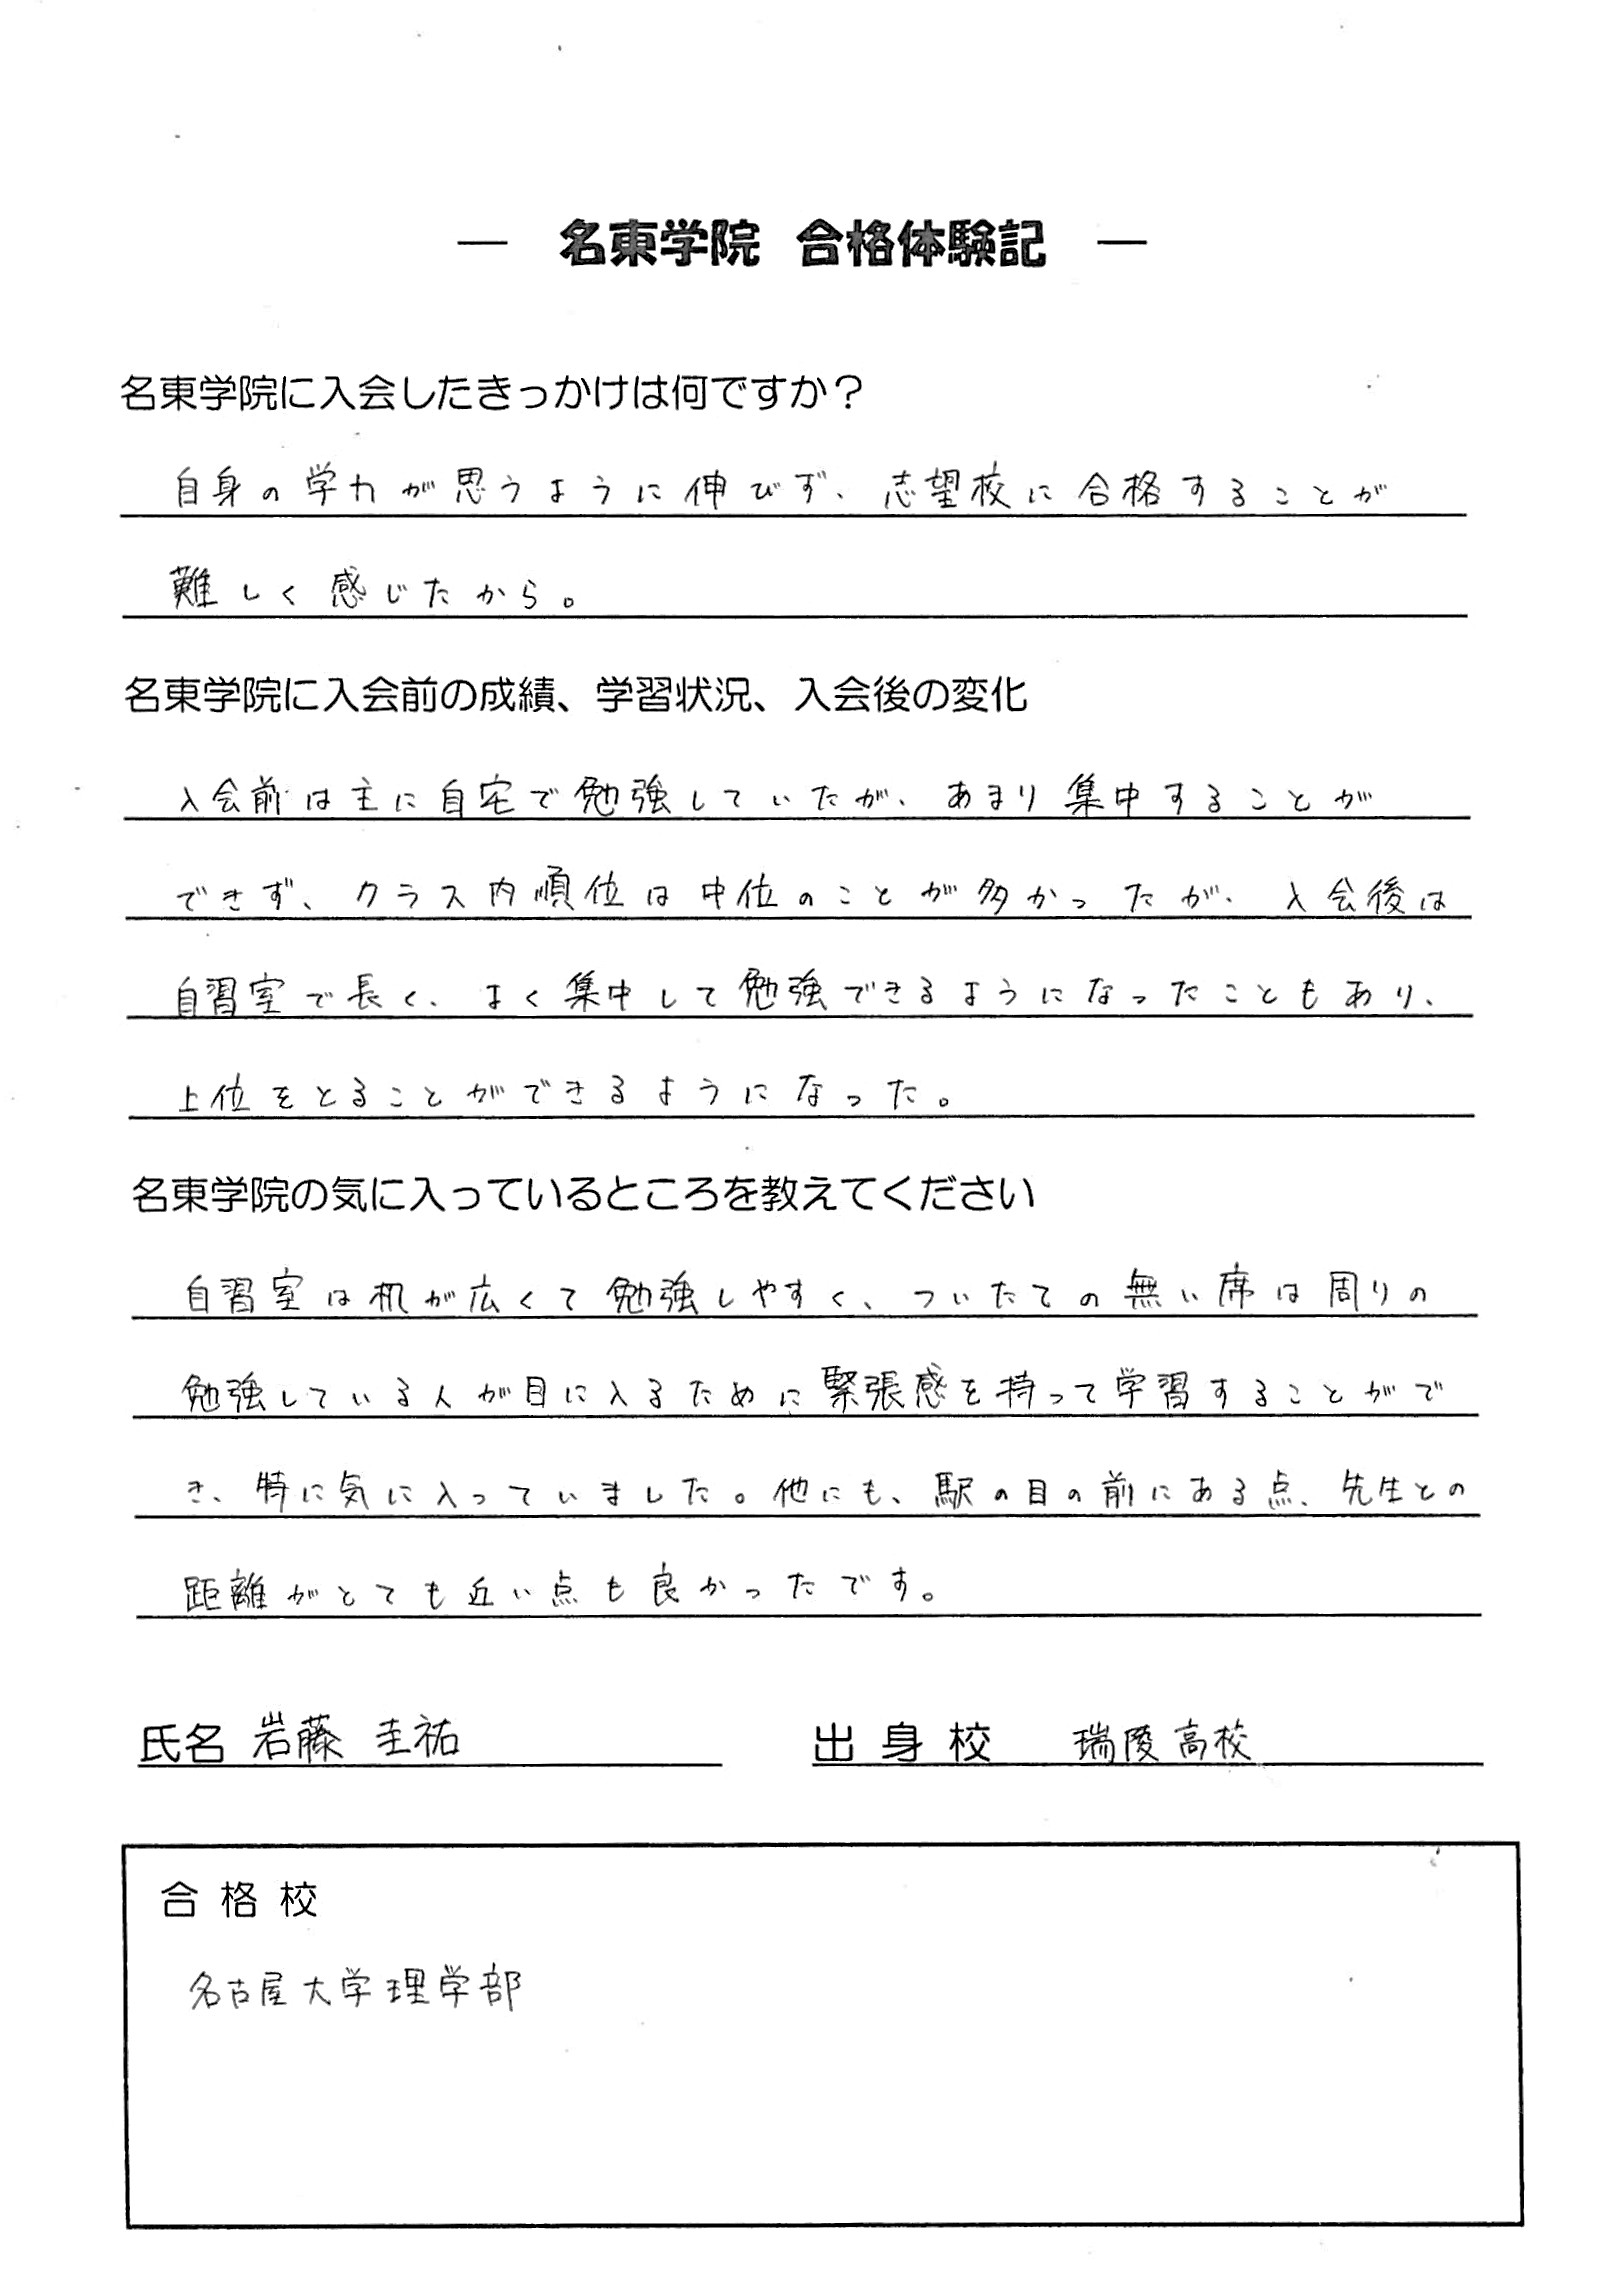 ― 名東学院 合格体験記 ―
名東学院に入会したきっかけは何ですか？
自身の学力が思うように伸びず、志望校に合格することが
難しく感じたから。
名東学院に入会前の成績、学習状況、入会後の変化
入会前は主に自宅で勉強していたが、あまり集中することが
できず、クラス内順位は中位のことが多かったが、入会後は
自習室で長く、よく集中して勉強できるようになったこともあり、
上位をとることができるようになった。
名東学院の気に入っているところを教えてください
自習室は机が広くて勉強しやすく、ついたての無い席は周りの
勉強している人が目に入るために緊張感を持って学習することがで
き、特に気に入っていました。他にも、駅の目の前にある点、先生との
距離がとても近い点も良かったです。
氏名 岩藤 圭祐 出身校 瑞陵高校
合格校
名古屋大学理学部